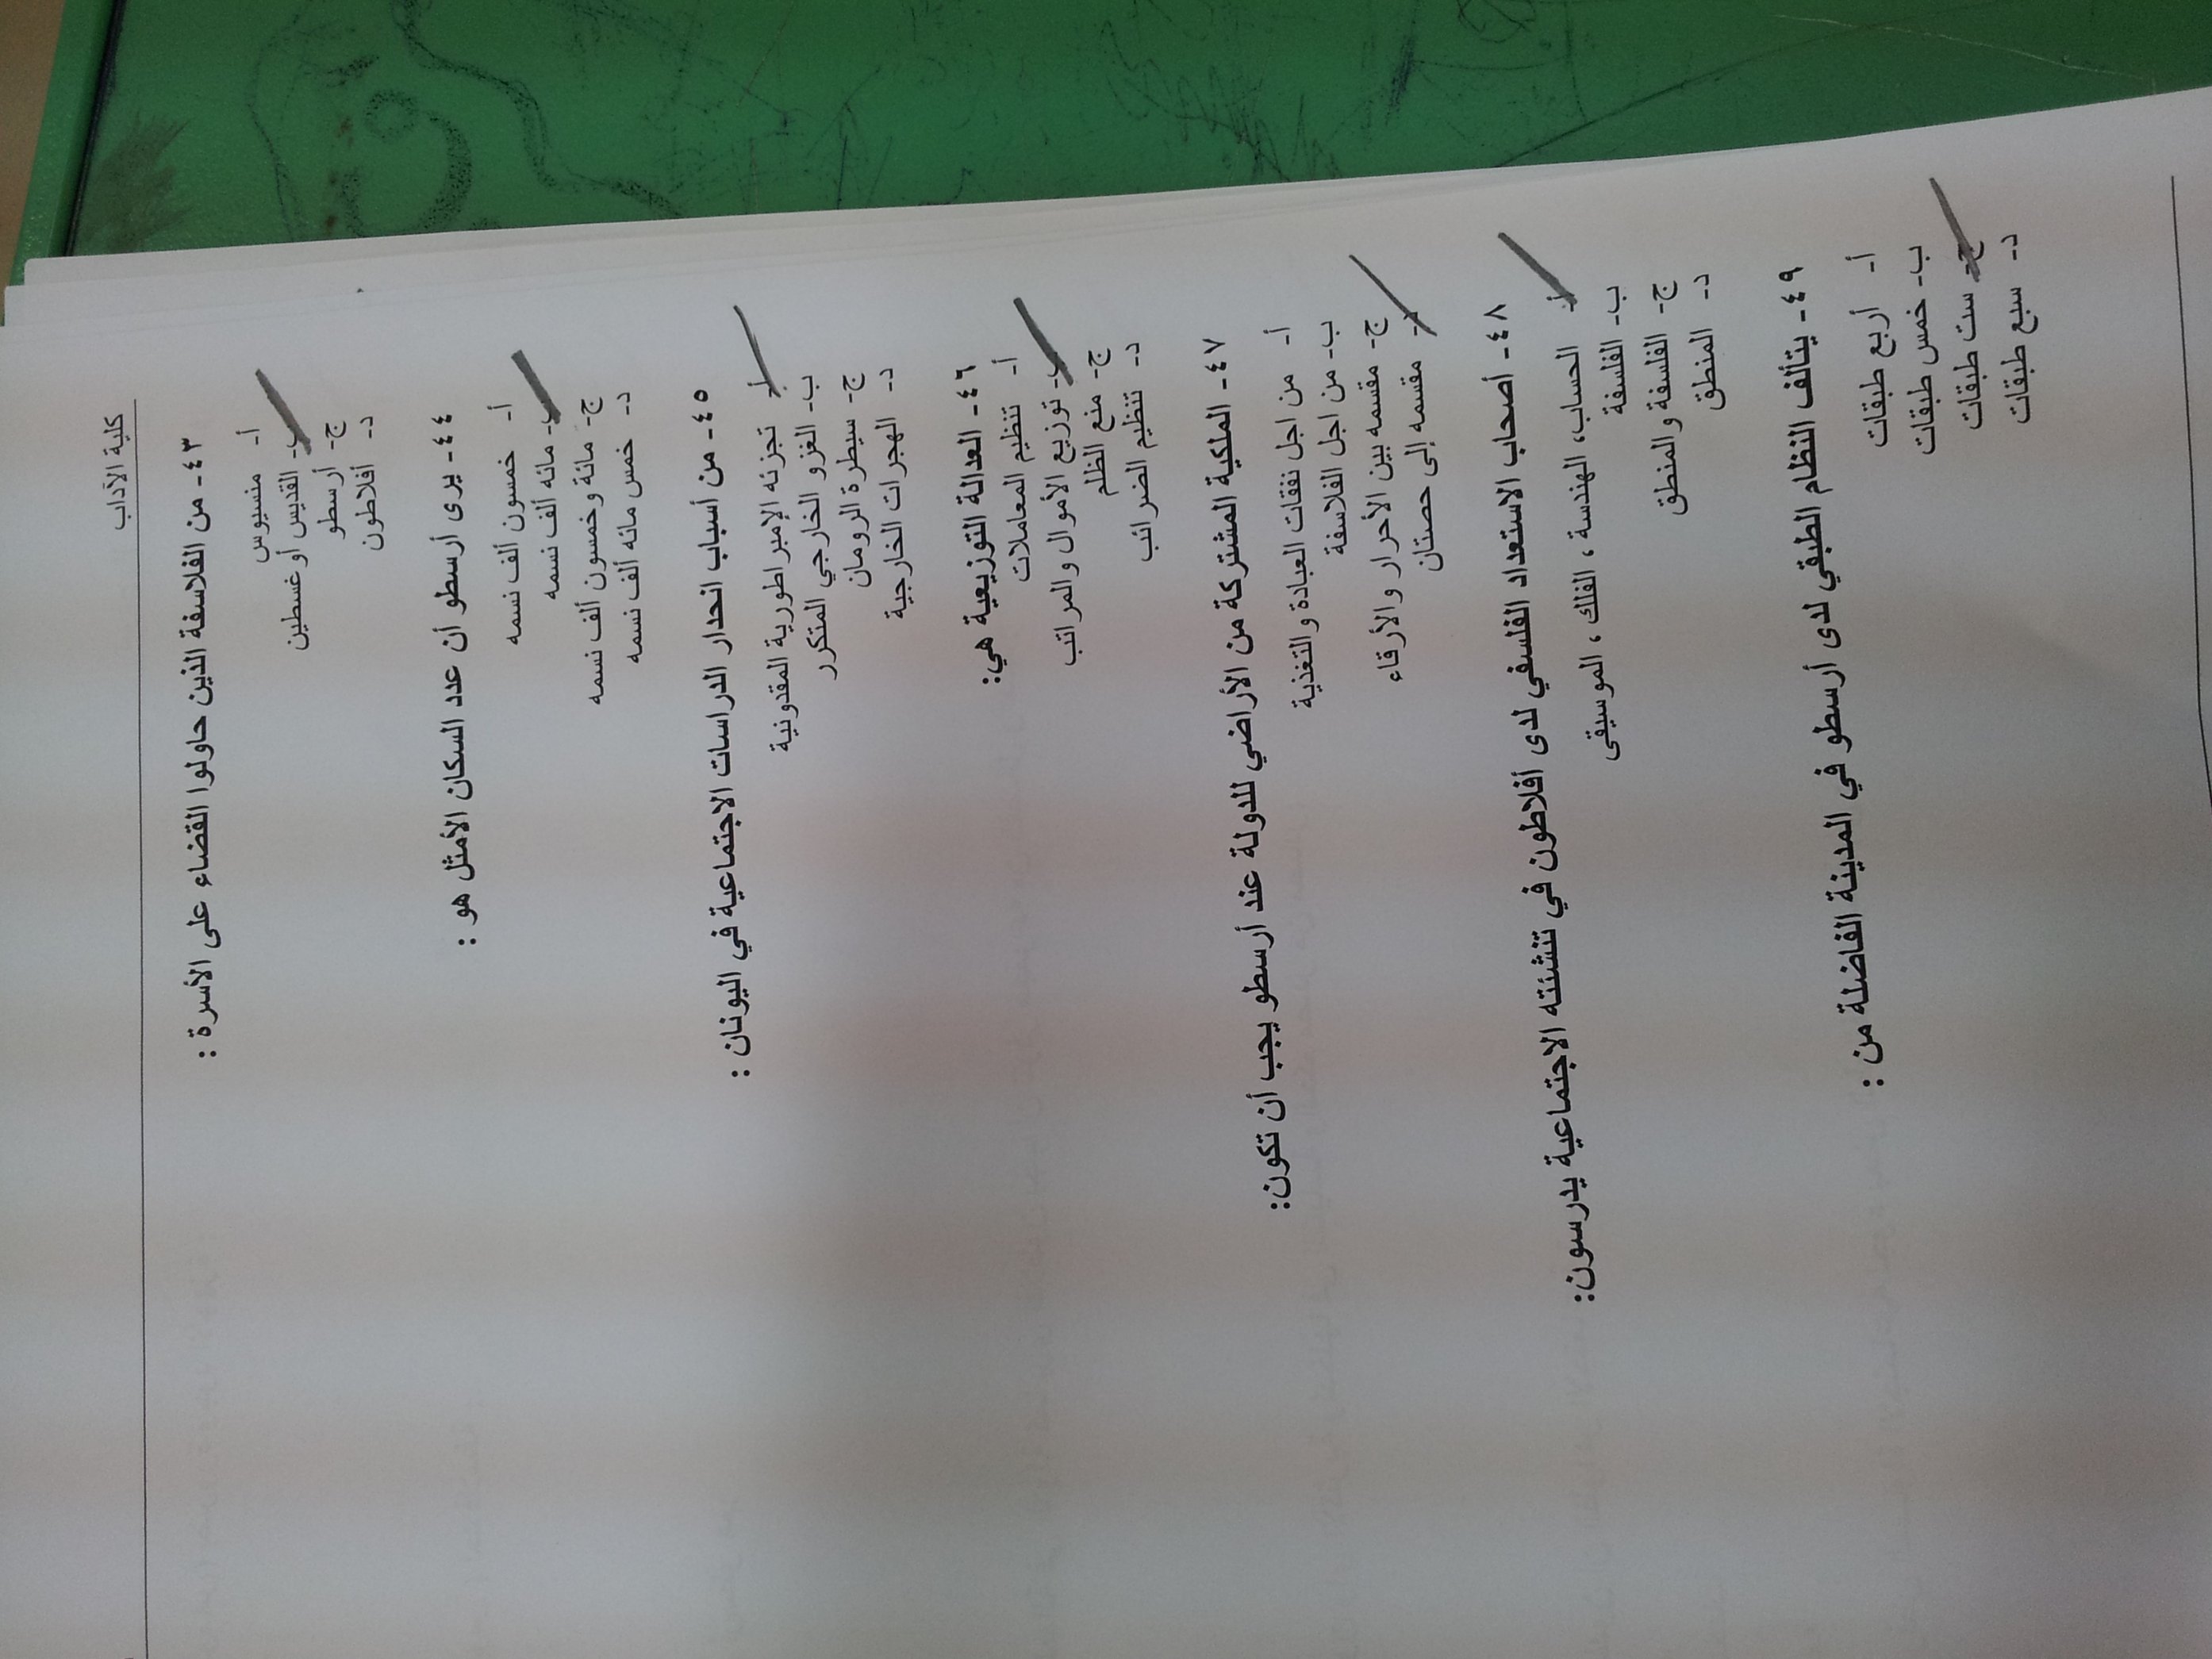 كلية الآداب
٤٣- من الفلاسفة الذين حاولوا القضاء على الأسرة :
أ- منسيوس
ب- القديس أوغسطين
ج- أرسطو
د- أفلاطون
٤٤- يرى أرسطو أن عدد السكان الأمثل هو :
أ- خمسون ألف نسمه
ب- مائه ألف نسمه
ج- مائة وخمسون ألف نسمه
د- خمس مائه ألف نسمه
٤٥- من أسباب انحدار الدراسات الاجتماعية في اليونان :
أ- تجزئه الإمبراطورية المقدونية
ب- الغزو الخارجي المتكرر
ج- سيطرة الرومان
د- الهجرات الخارجية
٤٦- العدالة التوزيعية هي:
أ- تنظيم المعاملات
ب- توزيع الأموال والمراتب
ج- منع الظلم
د- تنظيم الضرائب
٤٧- الملكية المشتركة من الأراضي للدولة عند أرسطو يجب أن تكون:
أ- من اجل نفقات العبادة والتغذية
ب- من اجل الفلاسفة
ج- مقسمه بين الأحرار والأرقاء
د- مقسمه إلى حصتان
٤٨- أصحاب الاستعداد الفلسفي لدى أفلاطون في تنشئته الاجتماعية يدرسون:
أ- الحساب، الهندسة ، الفلك ، الموسيقى
ب- الفلسفة
ج- الفلسفة والمنطق
د- المنطق
٤٩- يتألف النظام الطبقي لدى أرسطو في المدينة الفاضلة من :
أ- أربع طبقات
ب- خمس طبقات
ج- ست طبقات
د- سبع طبقات